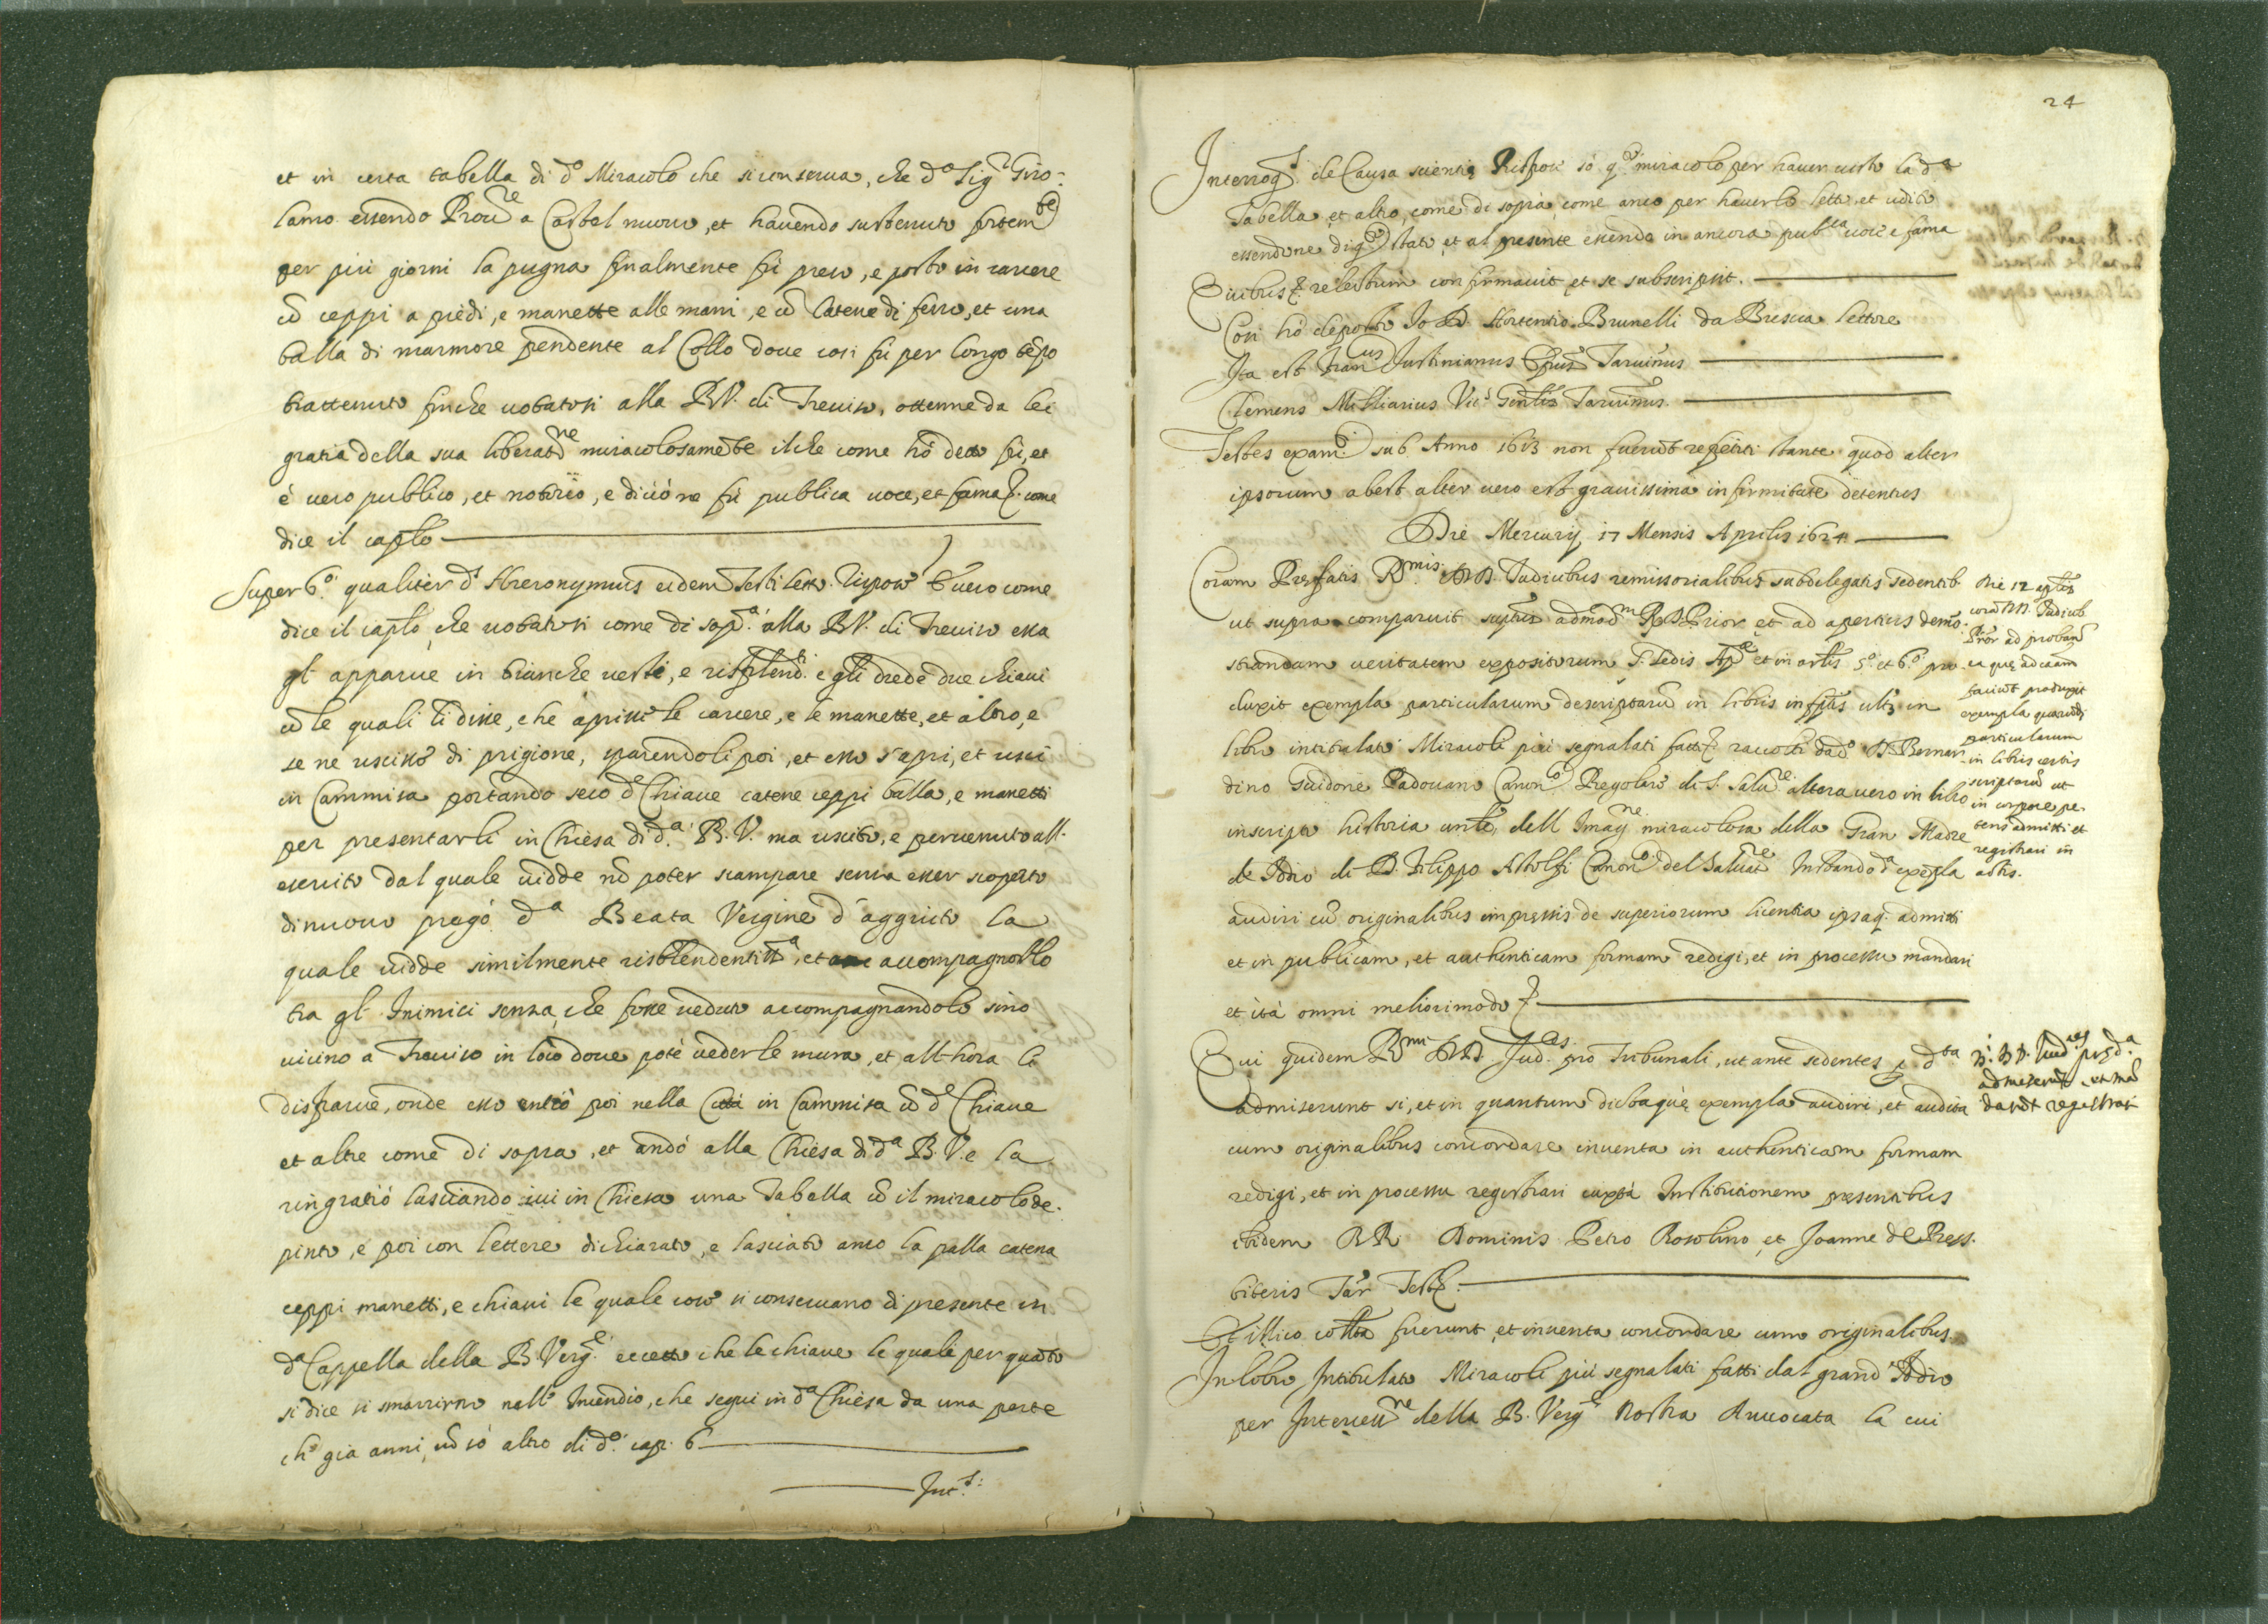 et in certa tabella di d.º Miracolo che si conserua, che d.º Sig.r Giro-
lamo essendo Prou.re a Castel nuouo, et hauendo sustenuto fortem.te
per più giorni la pugna finalmente fù preso, e posto in carcere
cõ ceppi a piedi, e manette alle mani, e cõ Catene di ferro, et una
balla di marmore pendente al Collo doue cosi fù per longo tẽpo
trattenuto finche uotatosi alla B.V. di Treuiso, ottenne da lei
gratia della sua liberat.ne miracolosamẽte il che come hò detto fù, et
è uero publico, et notorio, e di ciò ne fù publica uoce, et fama &. come
dice il caplo
Super 6.º qualiter d.s Hieronymus eidem Testi lett. rispose È uero come
dice il caplo, che uotatosi come di sop.a alla B.V. di Treuiso essa
gl apparue in bianche uesti, e risplend.ti e gli diede due chiaui
cõ le quali li disse, che aprisse le carcere, e le manette, et altro, e
se ne uscisse di prigione, sparendoli poi, et esso s'aprì, et uscì
in Cammisa portando seco d.e Chiaue catene ceppi balla, e manetti
per presentarli in Chiesa di d.a B.V. ma uscito, e peruenuto all'
esercito dal quale uidde nõ poter scampare senza esser scoperto
di nuouo pregò d.a Beata Vergine d'aggiuto la
quale uidde similmente risblendentiss.a, et accompagnollo
tra gl' Inimici senza, che fosse ueduto accompagnandolo sino
uicino a Treuiso in loco doue potè ueder le mura, et all'hora li
disparue, onde esso entrò poi nella Città in Cammisa cõ d.e Chiaue
et altre come di sopra, et andò alla Chiesa di d.a B.V. e la
ringratiò lasciando iui in Chiesa una Tabella cõ il miracolo de-
pinto, e poi con lettere dichiarato, e lasciato anco la palla catena
ceppi manetti, e chiaui le quale cose si conseruano di presente in
d.a Cappella della B. Verg.e eccetto che le chiaue le quali per quãto
si dice si smarrirno nell' Incendio, che seguì in d.a Chiesa da una parte
ch'è già anni, nõ sò altro di d.º cap. 6
Int.s:
24
Interrog.s de Causa scientiæ Rispose sò q.º miracolo per hauer uisto la d.a
Tabella, et altro, come di sopra, come anco per hauerlo letto, et udito
essendone di q.º stato, et al presente essendo in ancora pub.ca uoce e fama
Quibus &. relectum confirmauit et se subscripsit.
Cosi hò deposto Io D. Hortentio Brunelli da Brescia lettore
Ita est Fran.cus Justinianus Ep̃us Taruinus
Clemens Milliarius Vic.s Gen̄lis Taruinus.
Testes exam.ti sub Anno 1613 non fuerũt repetiti stante quod alter
ipsorum abest alter uero est grauissima infirmitate detentus
Die Mercurij 17 Mensis Aprilis 1624
Coram Præfatis R.mis DD. Judicibus remissorialibus subdelegatis sedentib.
ut supra comparuit sup̃tus admod.m R.D. Prior et ad apertius demõ-
strandum ueritatem expositorum S. Sedis Ap.ce et in artis 5.º et 6.º pro
duxit exempla particularum descriptarũ in libris infp̃tis ult.s in
libro intitulato Miracoli più segnalati fatti &. raccolti da d.º D. Bernar-
dino Guidone Padouano Canon.º Regolare di S. Salu.re altera uero in libro
inscripto historia unle, dell Imag.ne miracolosa della Gran Madre
de Iddio di D. Filippo Astolfi Canon.º del Saluat.re Instando d.a exẽpla
audiri cũ originalibus impressis de superiorum licentia ipsaq. admitti
et in publicam, et authenticam formam redigi, et in processu mandari
et ità omni meliori modo &
Die 17 aplis
corã DD. Judicib.
Prior ad probandũ
ea quæ ad causam
faciũt produxit
exempla quarũdã
particularum
in libris certis
scriptarũ ut
in corpore pe-
tens admitti et
registrari in
actis.
Qui quidem R.mi DD. Jud.ces pro Tribunali, ut ante sedentes d.ta
admiserunt si, et in quantum dictaque exempla audiri, et audita
cum originalibus concordare inuenta in authenticam formam
redigi, et in processu registrari iuxta Institutionem præsentibus
ibidem RR. Dominis Petro Rosolino et Joanne de Press.
biteris Tar. Test &.
R.i DD. Jud.ces præd.a
admiserũt et mã
darũt registrari
Et illico collta fuerunt, et inuenta concordare cum originalibus
In libro Intitulato Miracoli più segnalati fatti dal grand' Iddio
per Interuen.ne della B. Verg.e Nostra Auuocata la cui